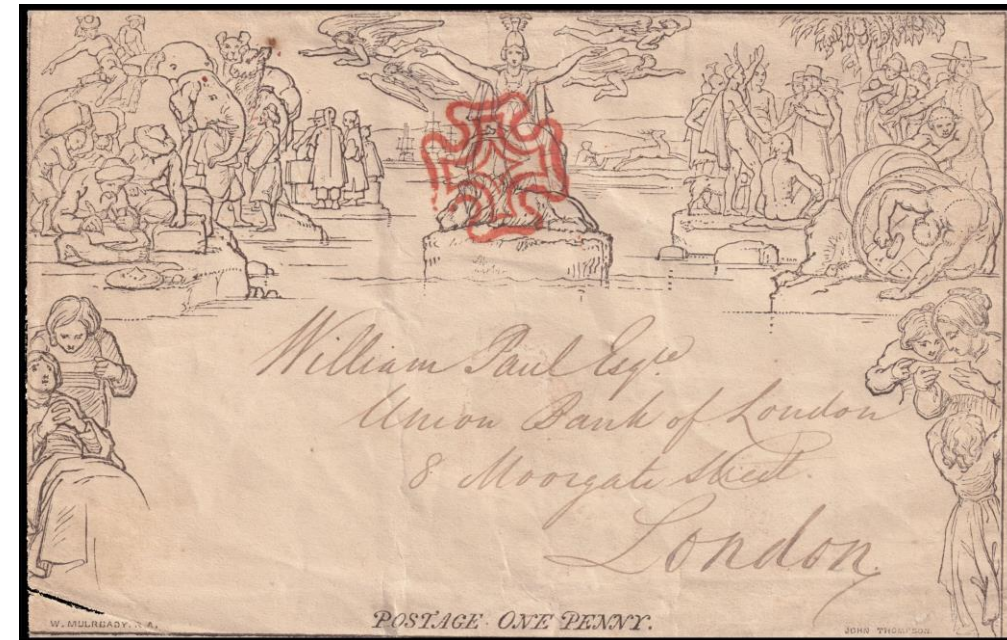 William Paul Esqre
Union Bank of London
8 Moorgate Street.
London.
W. MULREADY. R.A.
POSTAGE ONE PENNY.
JOHN THOMPSON